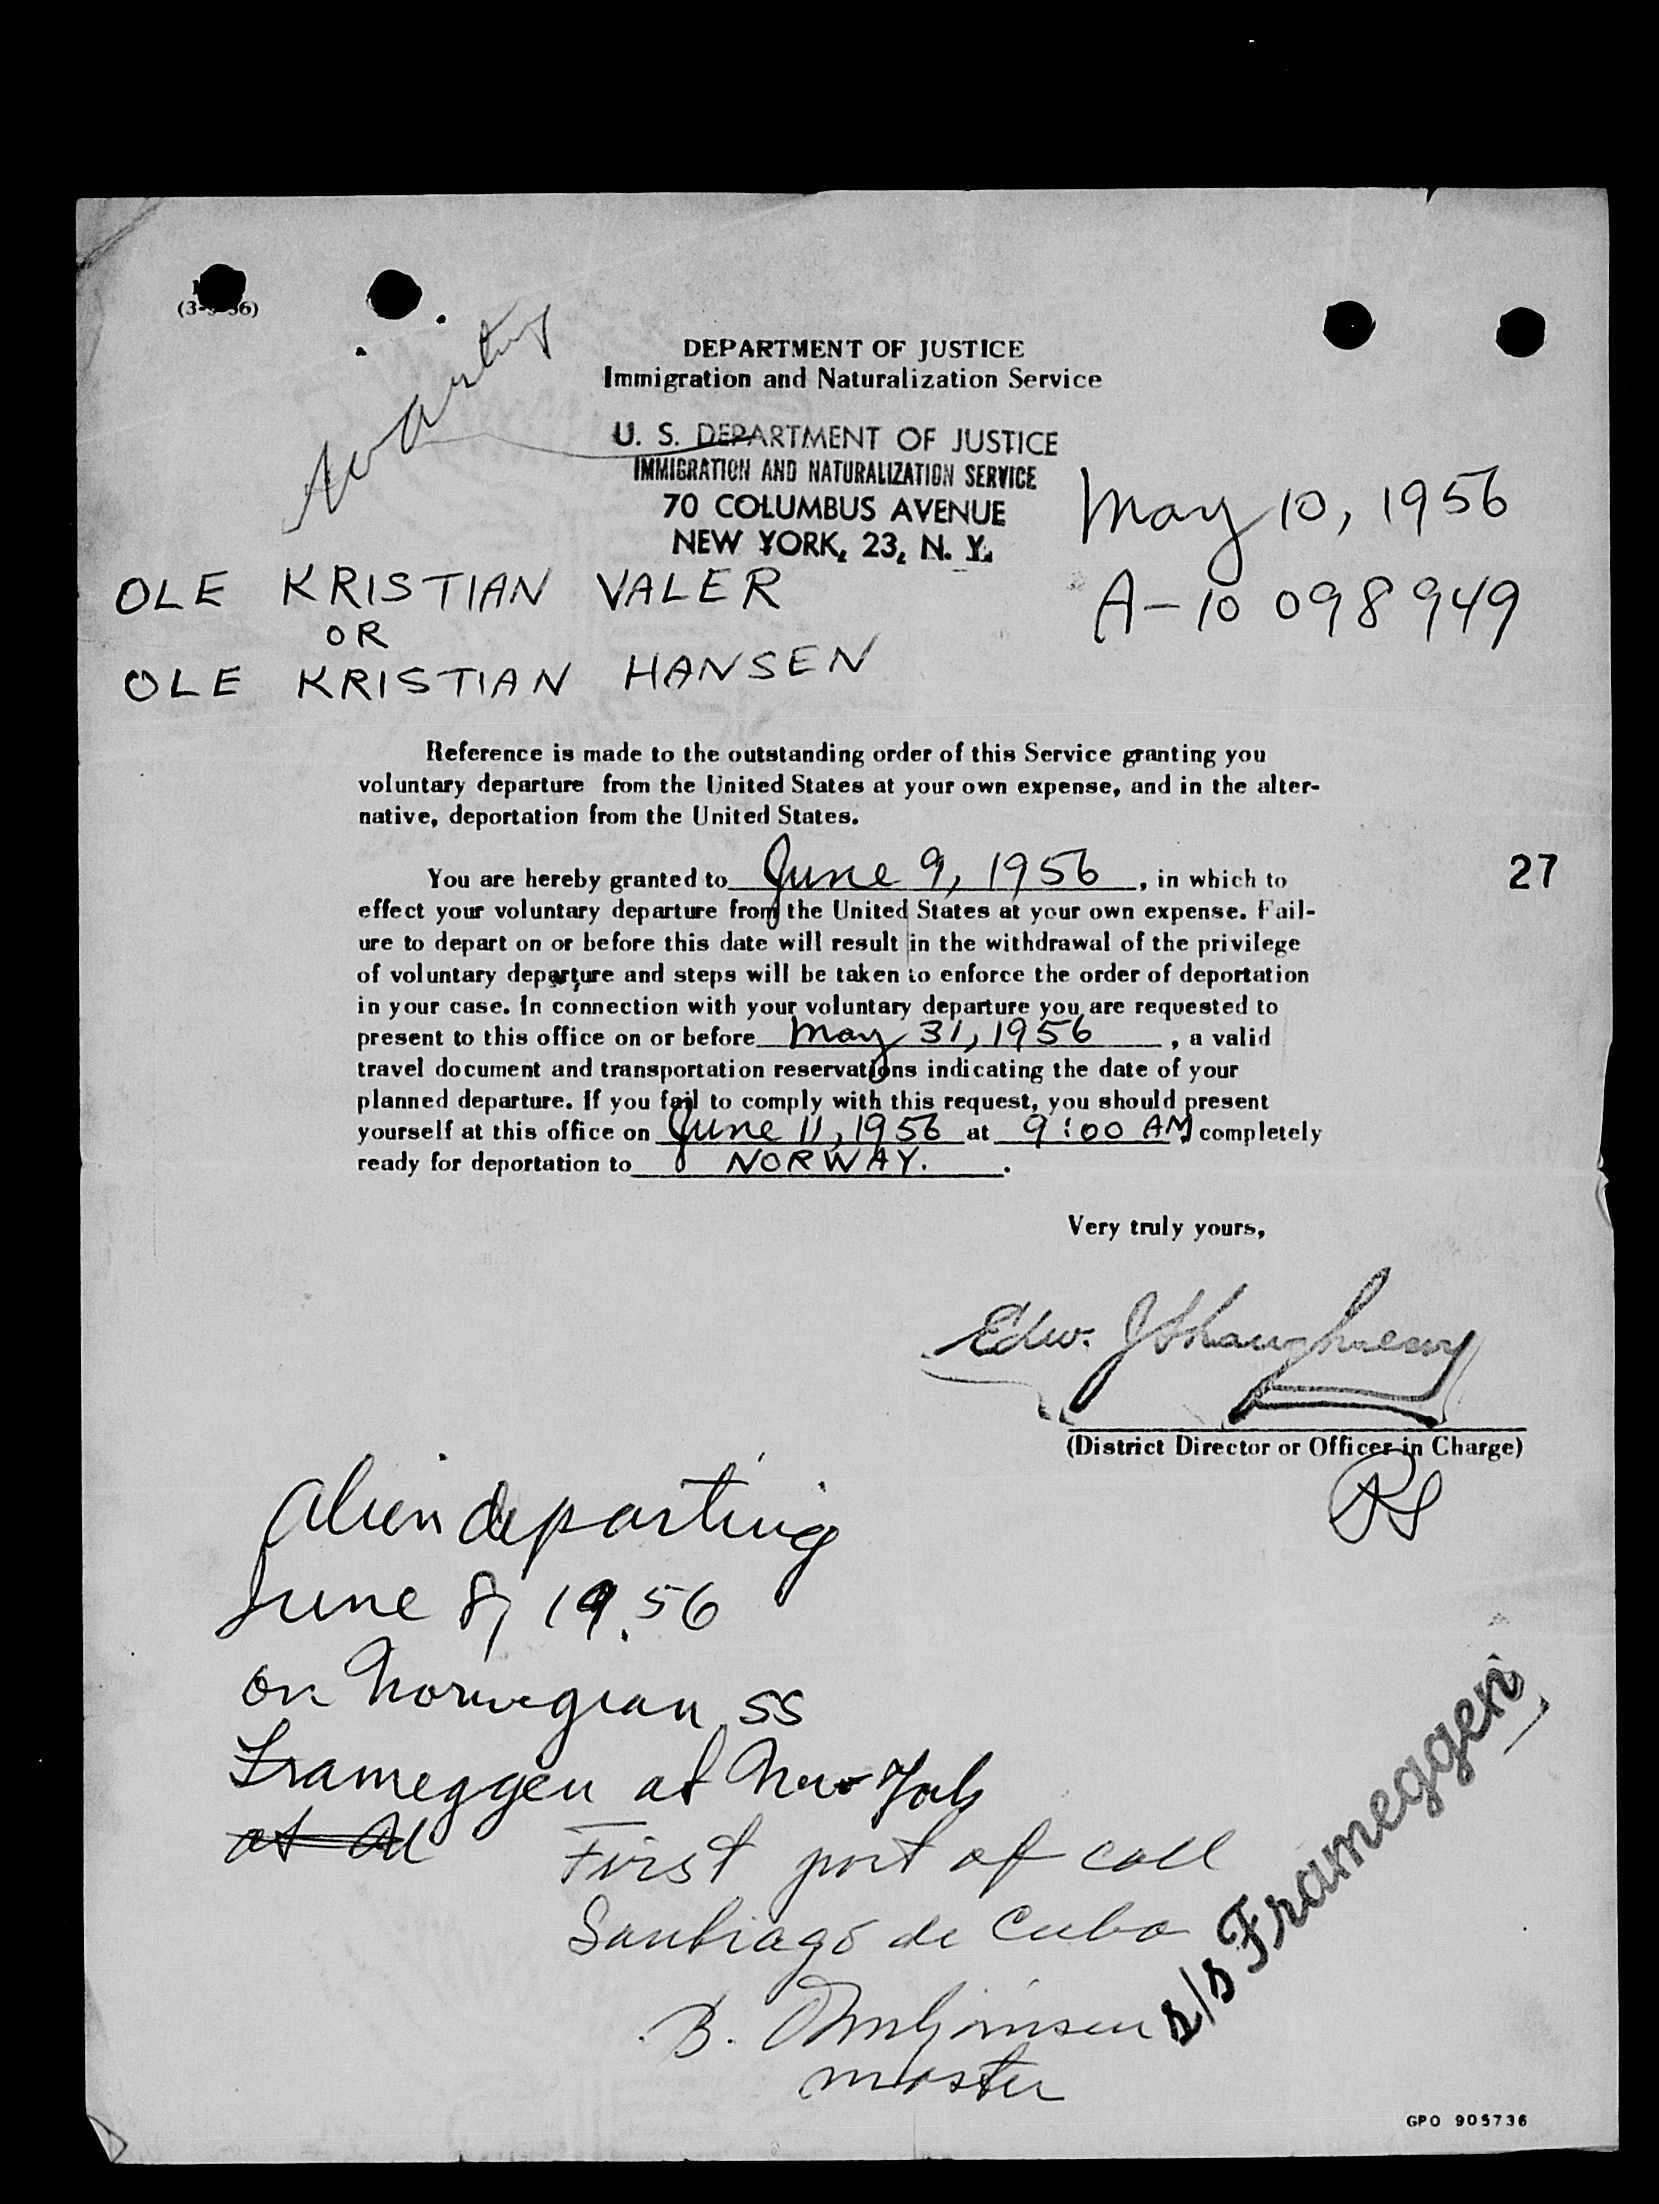 DEPARTMENT OF JUSTICE
Immigration and Naturalization Service
U. S. DEPARTMENT OF JUSTICE
IMMIGRATION AND NATURALIZATION SERVICE
70 COLUMBUS AVENUE
NEW YORK, 23, N. Y.
May 10, 1956
A-10 098 949
OLE KRISTIAN VALER
OR
OLE KRISTIAN HANSEN
Reference is made to the outstanding order of this Service granting you
voluntary departure from the United States at your own expense, and in the alter-
native, deportation from the United States.
You are hereby granted to June 9, 1956, in which to
27
effect your voluntary departure from the United States at your own expense. Fail-
ure to depart on or before this date will result in the withdrawal of the privilege
of voluntary departure and steps will be taken to enforce the order of deportation
in your case. In connection with your voluntary departure you are requested to
present to this office on or before May 31, 1956, a valid
travel document and transportation reservations indicating the date of your
planned departure. If you fail to comply with this request, you should present
yourself at this office on June 11, 1956 at 9:00 AM completely
ready for deportation to NORWAY. .
Very truly yours,
Edw. J Shaughnessy
(District Director or Officer in Charge)
alien departing
June 8, 1956
on Norwegian SS
Frameggen at New York
at
First port of call
Santiago de Cuba
s/s Frameggen
B.
master
GPO 905736